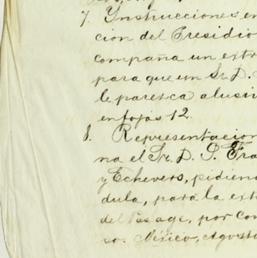 7. Instrucciones en
cion del Presidio
compaña un extr
para que un Sr. D.
le paresca alusi
en fojas 12.
8. Representacion
na el Sr. D. P. Fra
y Echevers, pidien
dula, para la ext
del Pasage, por con
so. Mexico, Agosto